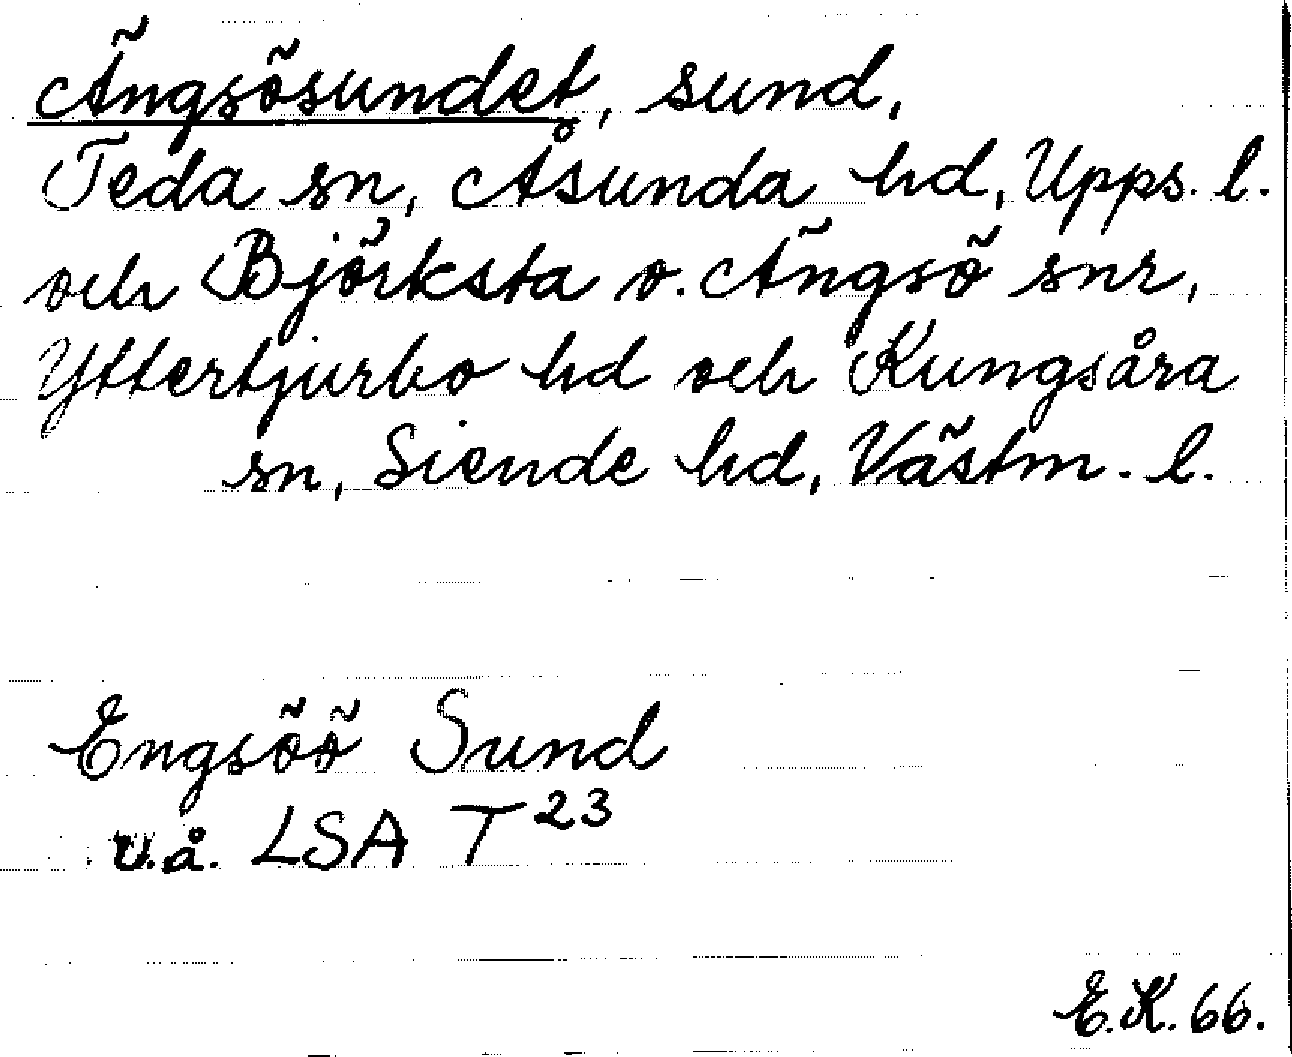 Ängsösundet, sund,
Teda sn, Åsunda hd, Upps. l.
och Björksta o. Ängsö snr,
Yttertjurbo hd och Kungsåra
sn, Siende hd, Västm. l.
Engsöö Sund
u.å. LSA T 23
E.K. 66.